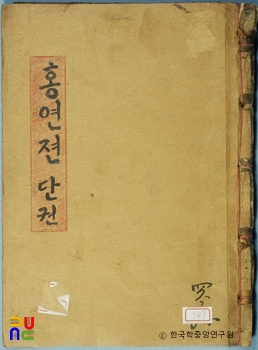 홍연젼단권
ⓒ 한국학중앙연구원